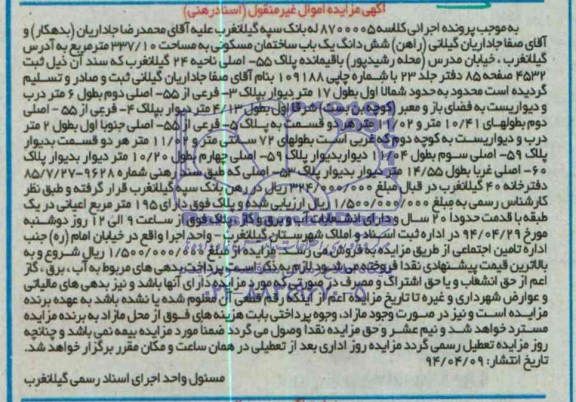 آگهی مزایده اموال غیر منقول (اسناد رهنی)
به موجب پرونده اجرائی کلاسه ۸۷۰۰۰۰۵ له بانک سپه گیلانغرب علیه آقای محمدرضا جاداریان (بدهکار) و
آقای صفا جاداریان گیلانی (راهن) شش دانگ یک باب ساختمان مسکونی به مساحت ۳۳۷/۱۰ مترمربع به آدرس
گیلانغرب ، خیابان مدرس (محله رشیدپور) باقیمانده پلاک ۵۵- اصلی ناحیه ۲۴ گیلانغرب که سند آن ذیل ثبت
۴۵۳۲ صفحه ۸۵ دفتر جلد ۲۳ با شماره چاپی ۱۰۹۱۸۸ بنام آقای صفا جاداریان گیلانی ثبت و صادر و تسلیم
گردیده است محدود به حدود شمالا اول بطول ۱۷ متر دیوار بپلاک ۳- فرعی از ۵۵- اصلی دوم بطول ۶ متر درب
و دیواریست به فضای باز و معبر (کوچه بن بست) شرقا اول بطول ۴/۱۳ متر دیوار بپلاک ۴- فرعی از ۵۵- اصلی
دوم بطولهای ۱۰/۴۱ متر و ۱۱/۰۲ متر هر دو قسمت به پلاک ۵- فرعی از ۵۵- اصلی جنوبا اول بطول ۲ متر
درب و دیواریست به کوچه دوم که غربی است بطولهای ۷۲ سانتی متر و ۱۱/۰۲ متر هر دو قسمت بدیوار
پلاک ۵۹- اصلی سوم بطول ۱۱/۰۴ دیوار بدیوار پلاک ۵۹- اصلی چهارم بطول ۱۰/۲۰ متر دیوار بدیوار پلاک
۶۰- اصلی غربا بطول ۱۴/۵۵ متر دیوار بدیوار پلاک ۵۳- اصلی که طبق سند رهنی شماره ۹۶۲۸-۸۵/۷/۲۷
دفترخانه ۴۰ گیلانغرب در قبال مبلغ ۳۲۴/۰۰۰/۰۰۰ ریال در رهن بانک سپه گیلانغرب قرار گرفته و طبق نظر
کارشناس رسمی به مبلغ ۱/۵۰۰/۰۰۰/۰۰۰ ریال ارزیابی شده و پلاک فوق دارای ۱۹۵ متر مربع اعیانی در یک
طبقه با قدمت حدودا ۲۰ سال و دارای انشعابات آب و برق و گاز و پلاک فوق از ساعت ۹ الی ۱۲ روز دوشنبه
مورخ ۹۴/۰۴/۲۹ در اداره ثبت اسناد و املاک شهرستان گیلانغرب - واحد اجرا واقع در خیابان امام (ره) جنب
اداره تامین اجتماعی از طریق مزایده به فروش می رسد. مزایده از مبلغ ۱/۵۰۰/۰۰۰/۰۰۰ ریال شروع و به
بالاترین قیمت پیشنهادی نقدا فروخته می شود لازم به ذکر است پرداخت بدهی های مربوط به آب ، برق ، گاز
اعم از حق انشعاب و یا حق اشتراک و مصرف در صورتی که مورد مزایده دارای آنها باشد و نیز بدهی های مالیاتی
و عوارض شهرداری و غیره تا تاریخ مزایده اعم از اینکه رقم قطعی آن معلوم شده یا نشده باشد به عهده برنده
مزایده است و نیز در صورت وجود مازاد، وجوه پرداختی بابت هزینه های فوق از محل مازاد به برنده مزایده
مسترد خواهد شد و نیم عشر و حق مزایده نقدا وصول می گردد ضمنا مورد مزایده بیمه نمی باشد و چنانچه
روز مزایده تعطیل رسمی گردد مزایده روز اداری بعد از تعطیلی در همان ساعت و مکان مقرر برگزار خواهد شد.
تاریخ انتشار: ۹۴/۰۴/۰۹
مسئول واحد اجرای اسناد رسمی گیلانغرب